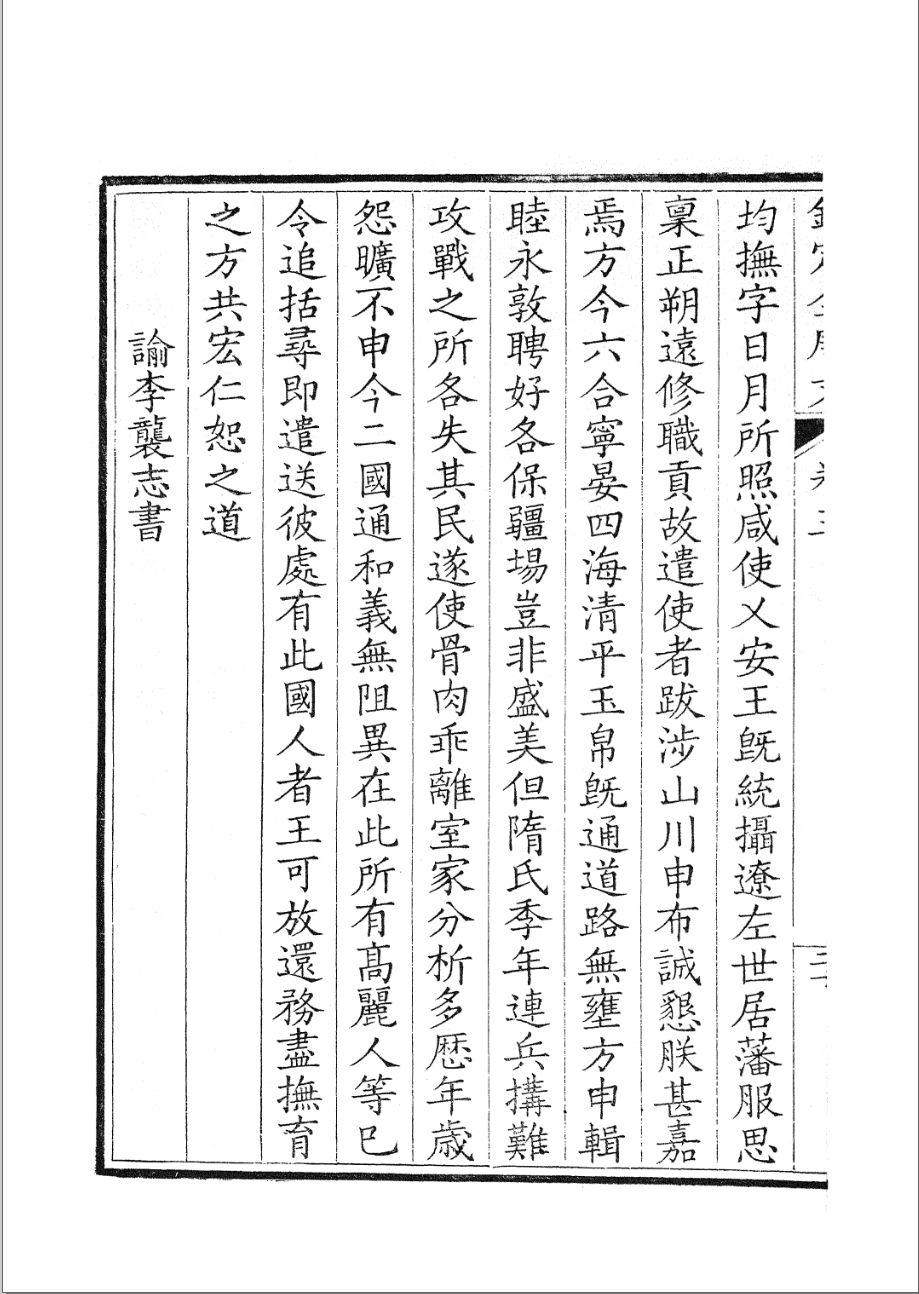 均撫字日月所照咸使乂安王既統攝遼左世居藩服思
稟正朔遠修職貢故遣使者跋涉山川申布誠懇朕甚嘉
焉方今六合寧晏四海清平玉帛既通道路無壅方申輯
睦永敦聘好各保疆場豈非盛美但隋氏季年連兵搆難
攻戰之所各失其民遂使骨肉乖離室家分析多歷年歲
怨曠不申今二國通和義無阻異在此所有高麗人等已
令追括尋即遣送彼處有此國人者王可放還務盡撫育
之方共宏仁恕之道
諭李襲志書